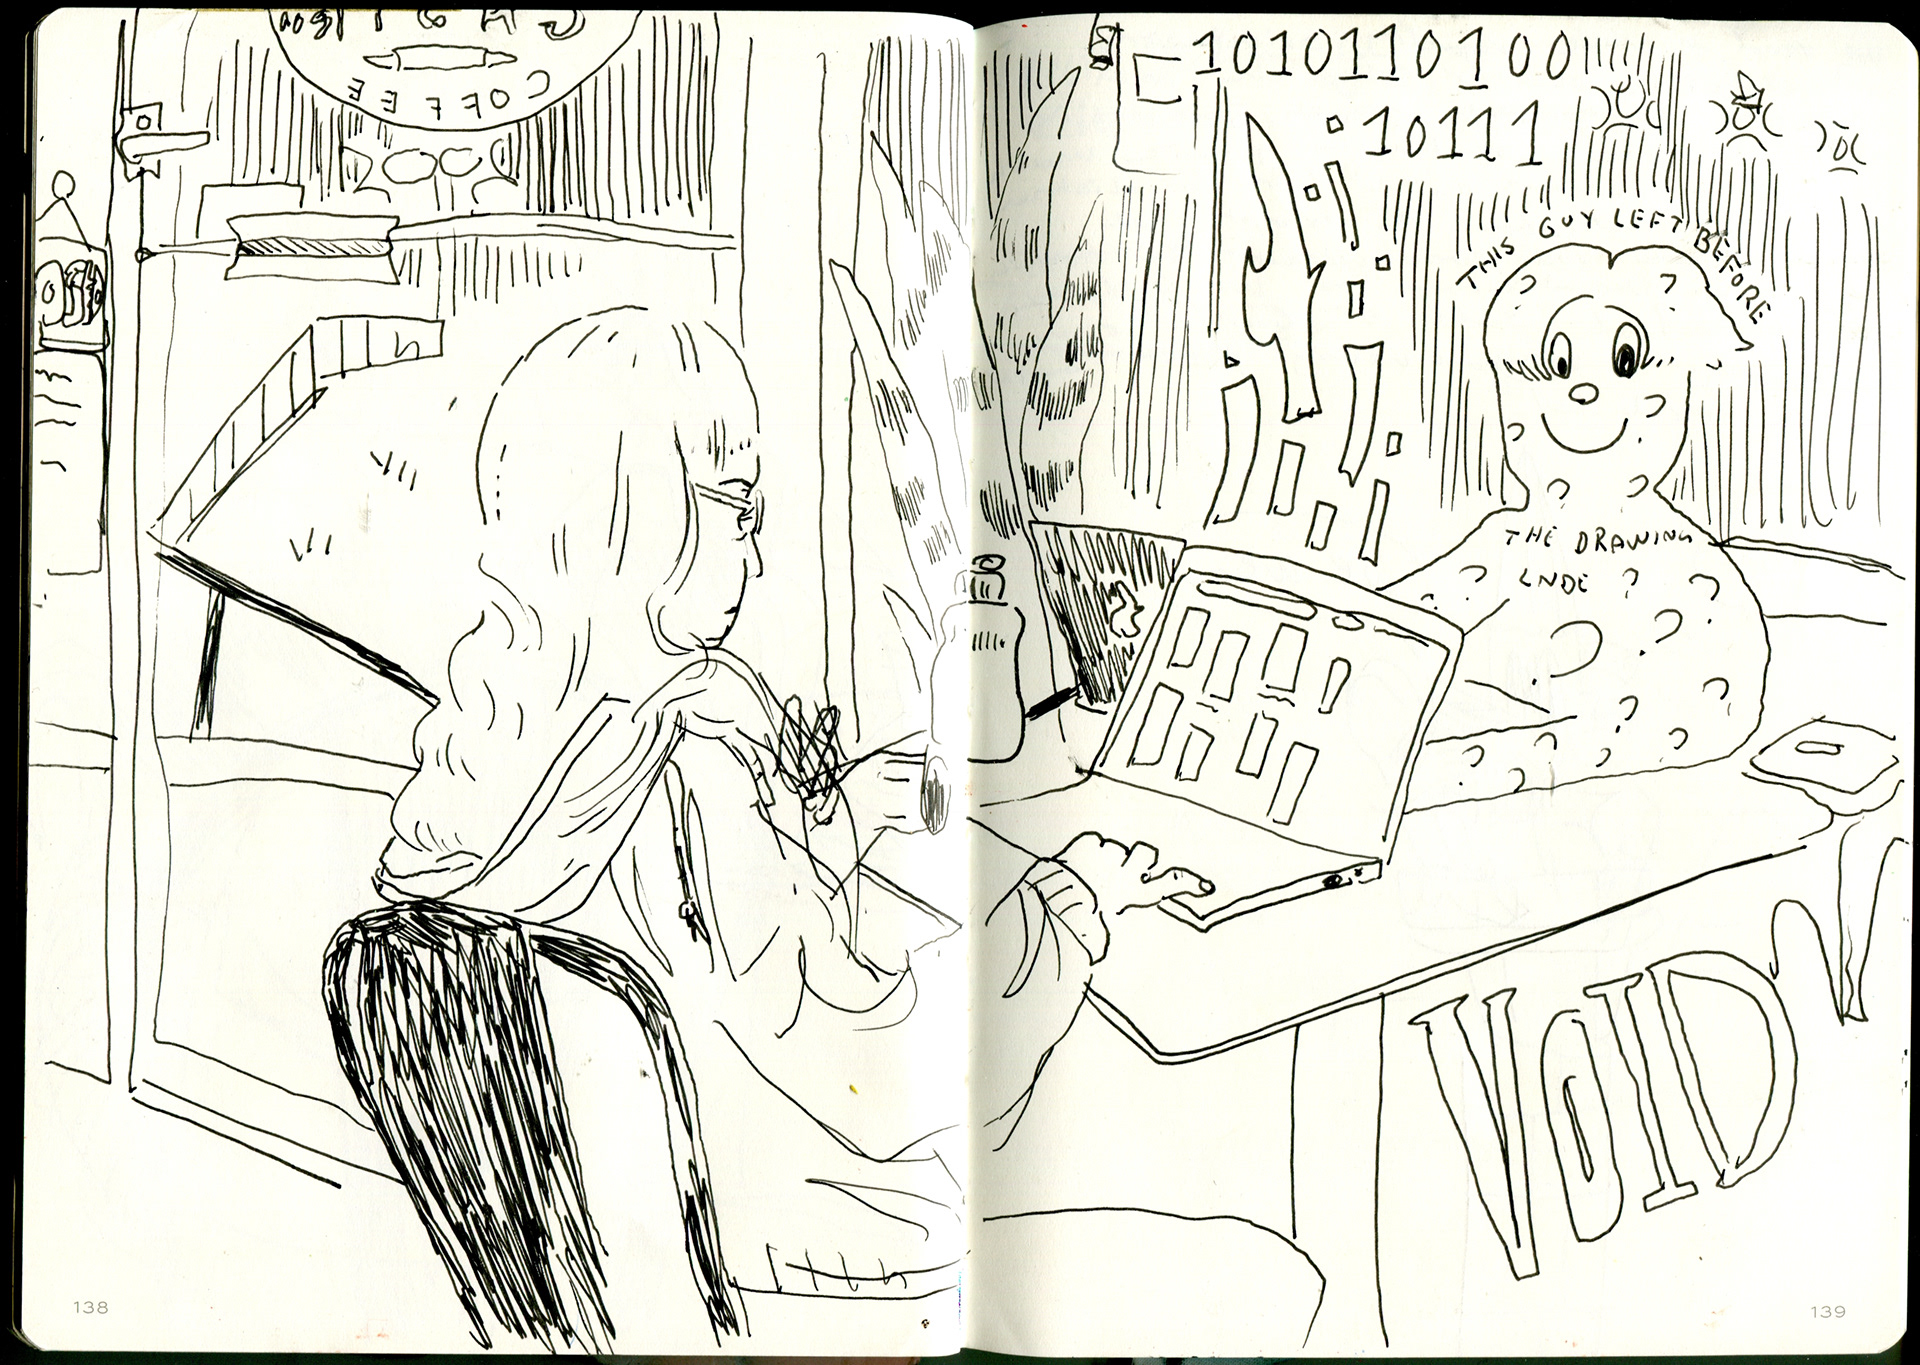 COFFEE
1010110100
10111
THIS GUY LEFT BEFORE
THE DRAWING
ENDE
VOID
138
139